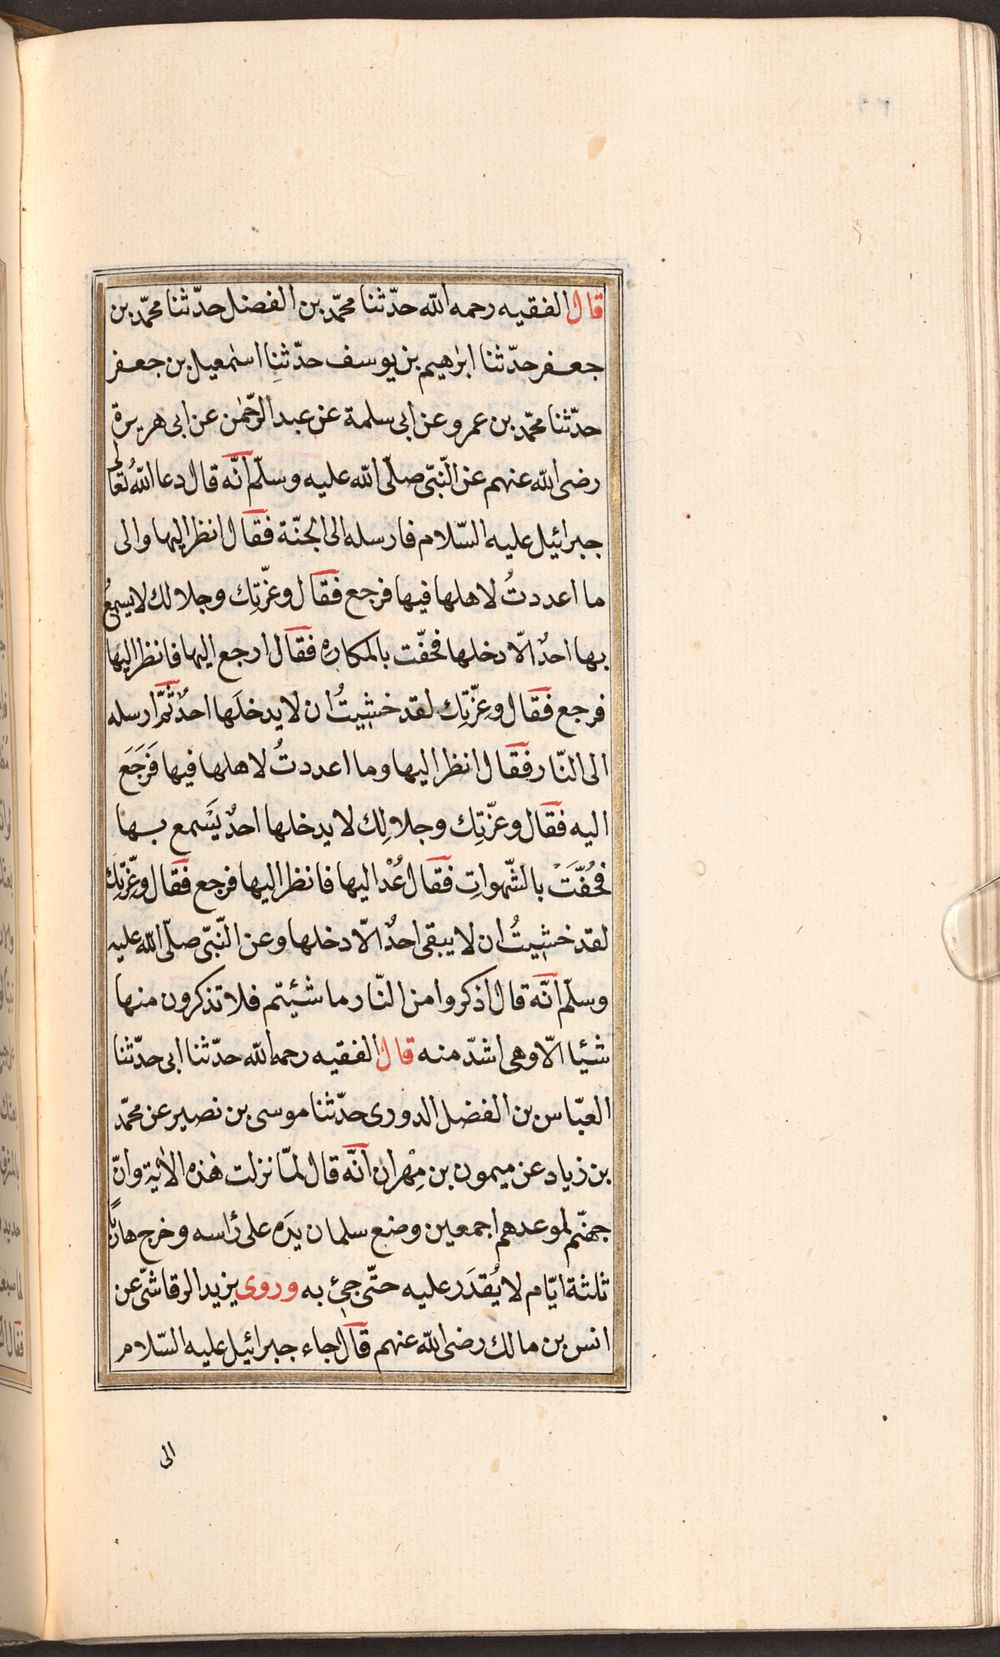 قال الفقيه رحمه الله حدّثنا محمّد بن الفضل حدّثنا محمّد بن
جعفر حدّثنا ابرهيم بن يوسف حدّثنا اسمعيل بن جعفر
حدّثنا محمّد بن عمرو عن ابى سلمة عن عبد الرّحمن عن ابى هريرة
رضى الله عنهم عن النّبىّ صلّى الله عليه وسلّم انّه قال دعا اللّهُ تعالى
جبرائيل عليه السّلام فارسله الى الجنّة فقال انظر اليها والى
ما اعددتُ لاهلها فيها فرجع فقال وعزّتِك وجلالك لا يسمعُ
بها احدٌ الّا دخلها فحفّت بالمكاره فقال ارجع اليها فانظر اليها
فرجع فقال وعِزّتِك لقد خشِيتُ ان لا يدخلَها احدٌ ثمّ ارسله
الى النّار فقال انظر اليها وما اعددتُ لاهلها فيها فَرَجَعَ
اليه فقال وعزّتِك وجلالِك لا يدخلها احدٌ يَسمع بها
فحُفّتَ بالشّهواتِ فقال عُدْ اليها فانظر اليها فرجع فقال وعِزّتِك
لقد خشِيتُ ان لا يبقى احدٌ الّا دخلها وعن النّبىّ صلّى الله عليه
وسلّم انّه قال اذكروا من النّار ما شئيتم فلا تذكرون منها
شئيا الّا وهى اشدّ منه قال الفقيه رحمه الله حدّثنا ابى حدّثنا
العبّاس بن الفضل الدورى حدّثنا موسى بن نصير عن محمّد
بن زياد عن ميمون بن مِهْران انّه قال لمّا نزلت هذه الاية وانّ
جهنّم لموعدهم اجمعين وضع سلمان يَدَه على رَاسه وخرج هاربًا
ثلثة ايّام لا يُقدَر عليه حتّى جئ به وروى يزيد الرقاشىّ عن
انس بن مالك رضى الله عنهم قال جاء جبرائيل عليه السّلام
الى